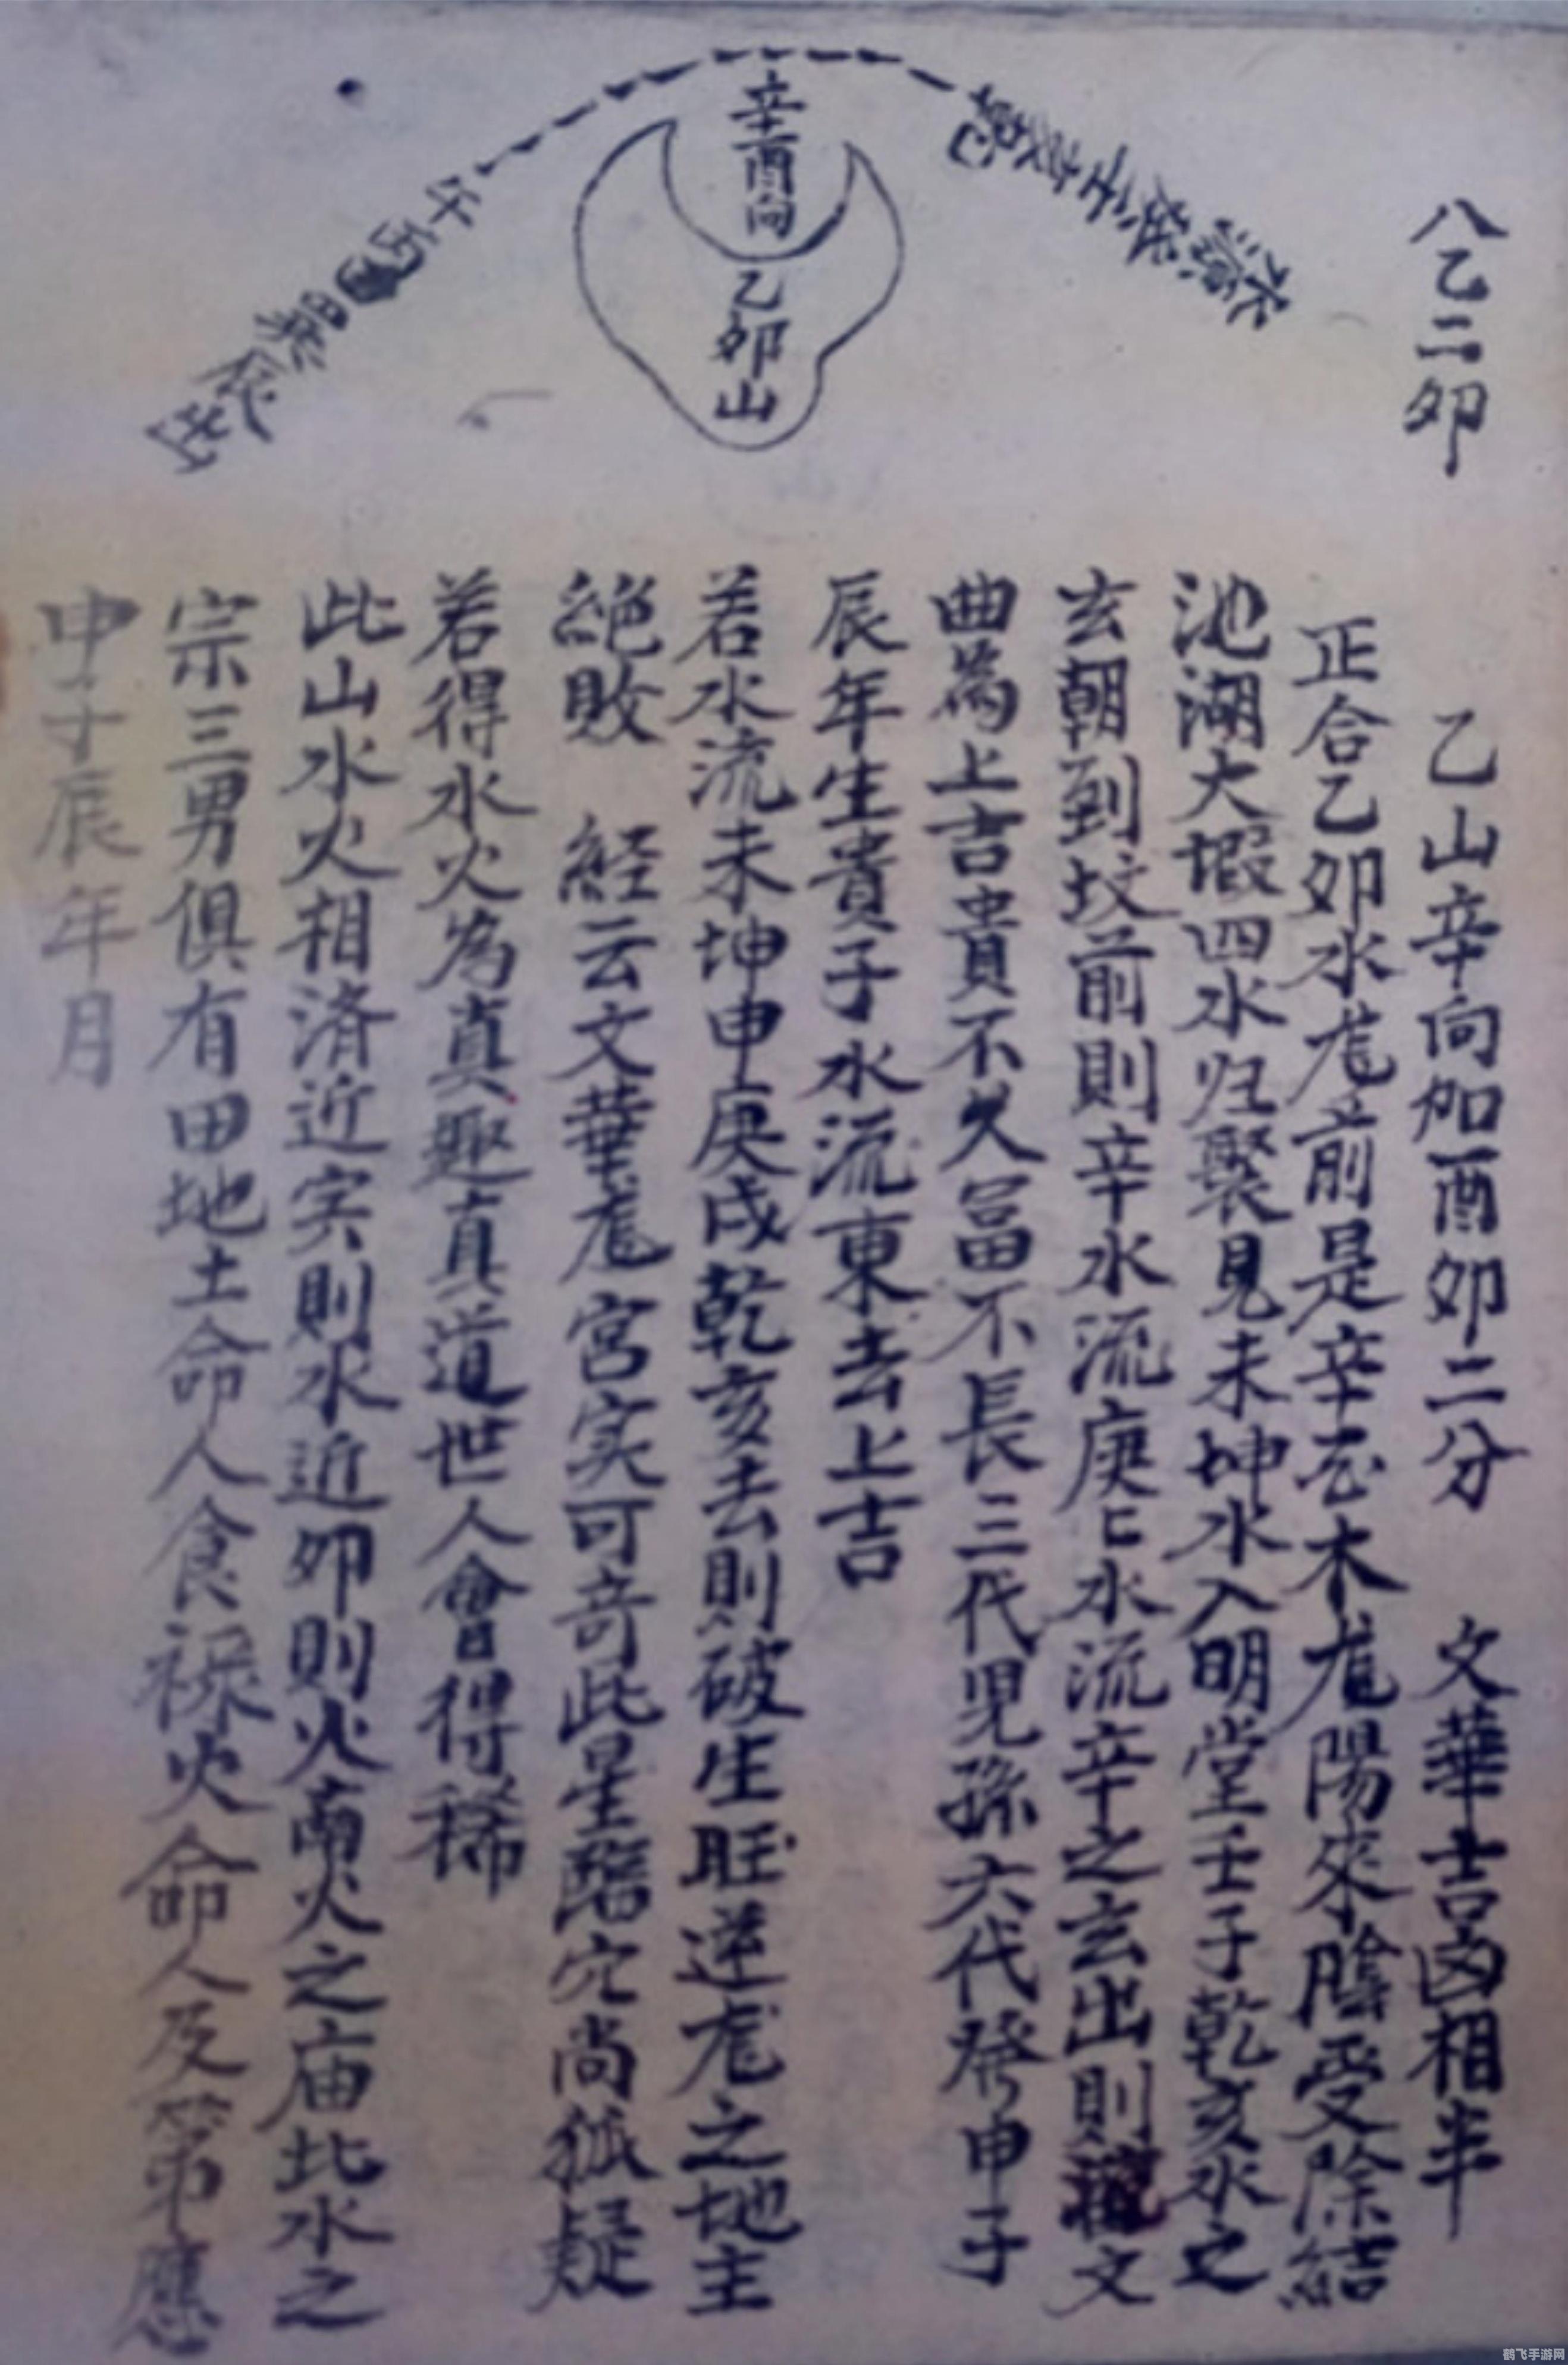 八乙二卯
辛酉向
乙卯山
水源癸子壬亥乾
午丙巽
出
乙山辛向加酉卯二分 文華吉凶相半
正合乙卯水尨前是辛 木尨陽來陰受除結
池湖大塅四水归聚見未坤水入明堂壬子乾亥水之
玄朝到坟前則辛水流庚匕水流辛之玄出則文
曲為上吉貴不久冨不長三代児孫六代發甲子
辰年生貴子水流東去上吉
若水流未坤申庚戌乾亥去則破生旺逆尨之地主
絕敗 経云文華尨宮实可奇此星臨穴尚狐疑
若得水火為真趣真道世人會得稀
此山水火相済近寅則水近卯則火南火之庙北水之
宗三男俱有田地土命人食禄火命人及第應
申子辰年月
鹤飞手游网